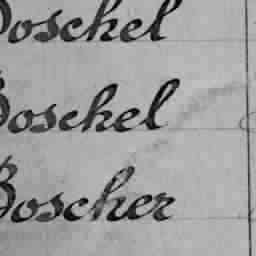 Boschel
Boschel
Boscher